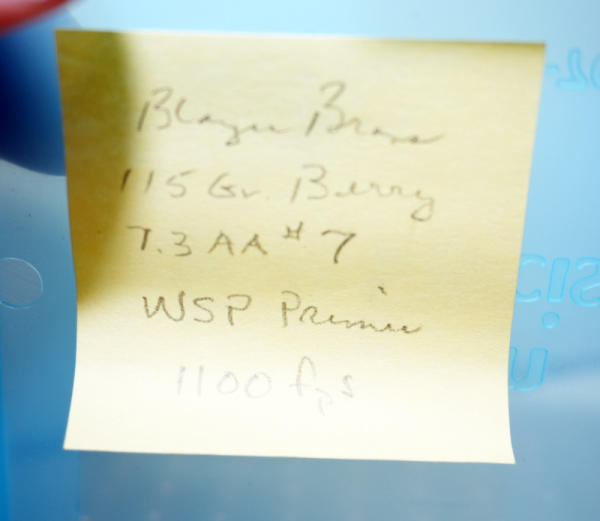 Blazer Brass
115 Gr. Berry
7.3 AA #7
WSP Primer
1100 fps